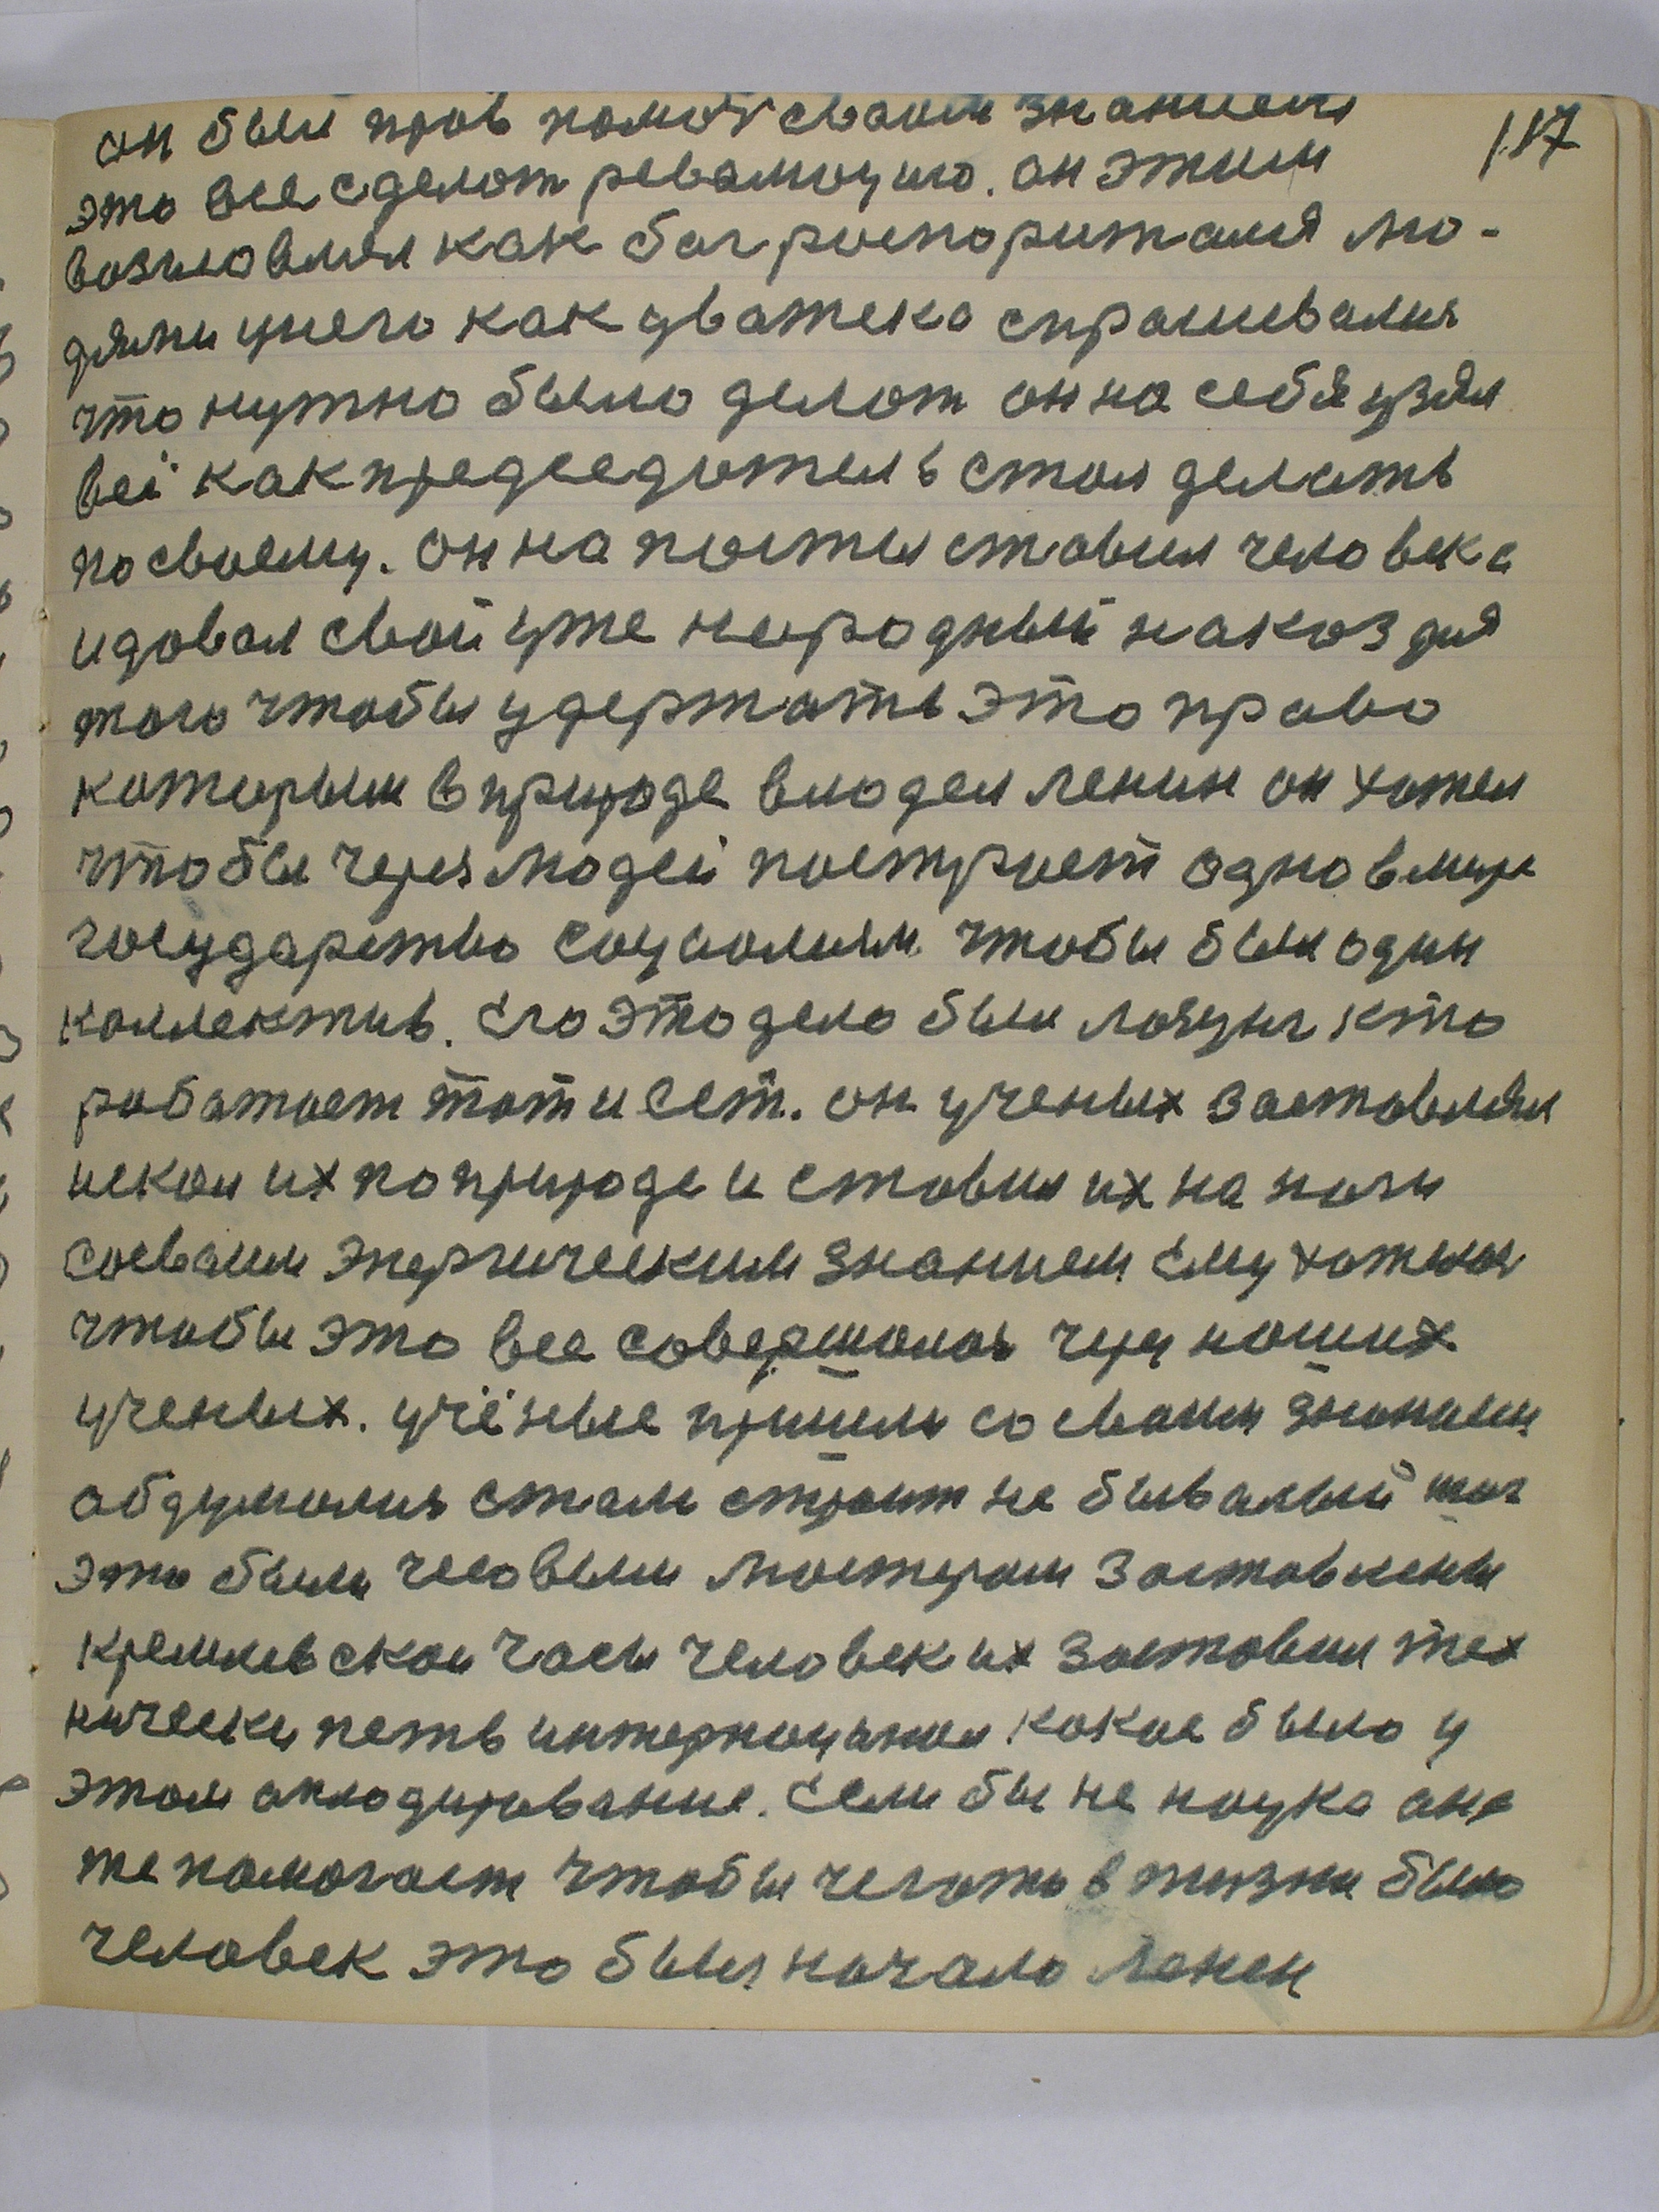 117
он был прав помог своим знанием
это все сделот революцию. он этим
возглавлял как бог роспоритался лю-
дями унего как дватека спрашивался
что нутно было делот он на себя узял
всё как председотель стал делать
посвоему. он на посты ставил человека
идовал свой уже народный наказ для
того чтобы удержать это право
которым вприроде влодел ленин он хотел
чтобы через людей построет одно вмире
государство социолизм чтобы был один
коллектив. его это дело был лозунг кто
роботоет тот и ест. он ученых заставлял
искал их поприроде и ставил их на ноги
сосвоим энергическим знанием ему хотелос
чтобы это все совершолось через наших
ученых. учёные пришли со своим знонием
обдумолись стали строит не бывалый шаг
это были чесовым мостерам заставлены
кремлевской часы человек их заставил тех
нически петь интернацянал какое было у
этом оплодирование. Если бы не наука она
же помогает чтобы чегото в жизни было
человек это был начало ленин